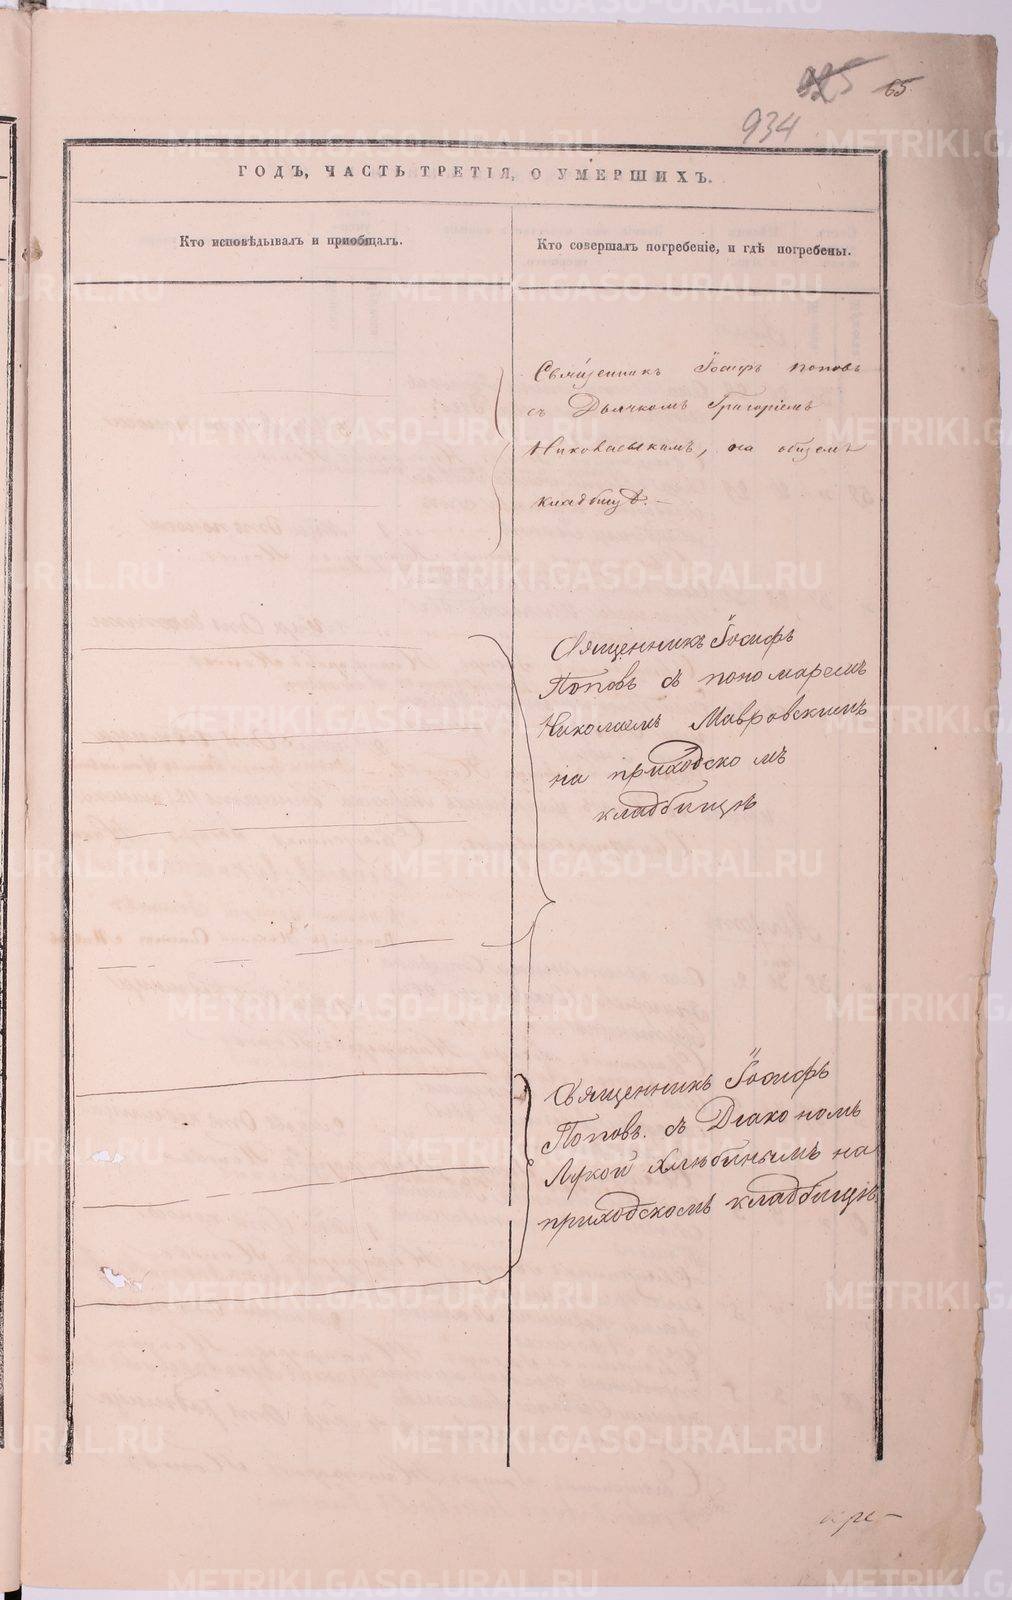 65
934
ГОДЪ, ЧАСТЬ ТРЕТІЯ, О УМЕРШИХЪ.
Кто исповѣдывалъ и пріобщалъ.
Кто совершалъ погребеніе, и гдѣ погребены.
Священникъ Іосифъ Поповъ
съ Дьячкомъ Григоріемъ
Николаевскимъ, на общемъ
кладбищѣ.
Священникъ Іосифъ
Поповъ съ пономаремъ
Николаемъ Мавровскимъ
на приходскомъ
кладбищѣ
Священникъ Іосифъ
Поповъ. съ Діакономъ
Лукой Хлюбинымъ на
приходскомъ кладбищѣ
METRIKI.GASO-URAL.RU